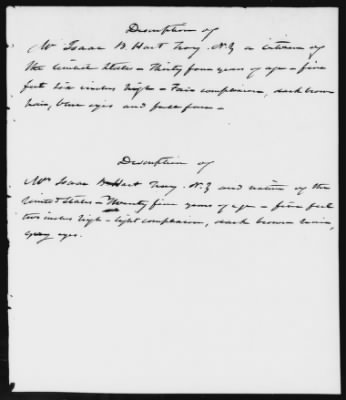 Description of
Mr Isaac B Hart Troy. N.Y a citizen of
the United States – Thirty four years of age – five
feet six inches high – Fair complexion, dark brown
hair, blue eyes and full face –
Description of
Mrs Isaac B Hart Troy. N.Y and native of the
United States – Twenty five years of age – five feet
two inches high – light complexion, dark brown hair,
gray eyes.